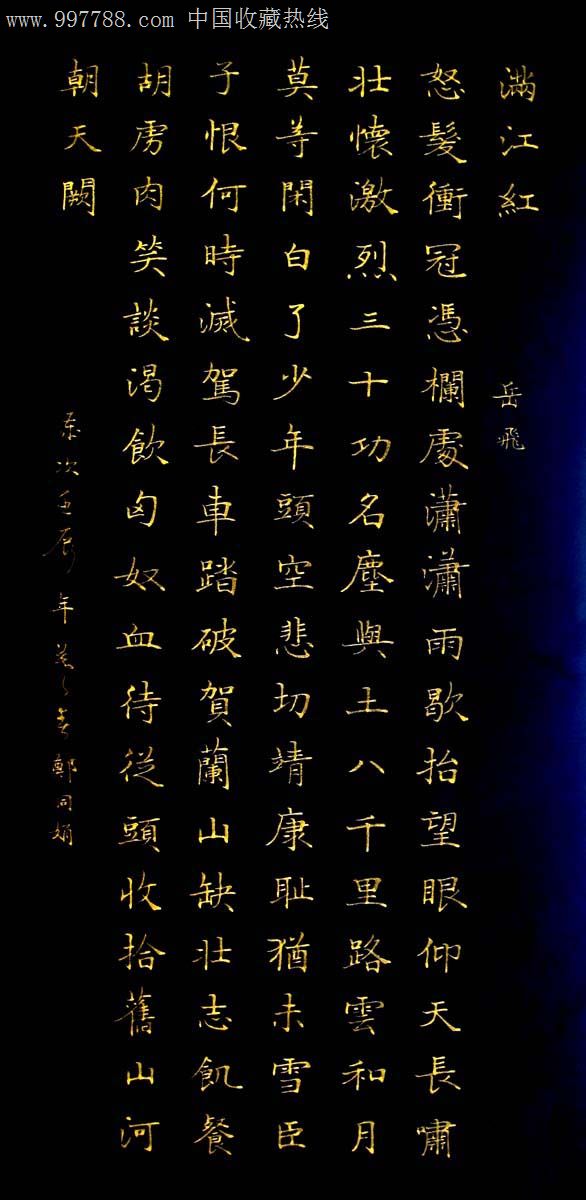 www.997788.com 中国收藏热线
滿江紅
岳飛
怒髮衝冠憑欄處瀟瀟雨歇抬望眼仰天長嘯
壯懷激烈三十功名塵與土八千里路雲和月
莫等閑白了少年頭空悲切靖康恥猶未雪臣
子恨何時滅駕長車踏破賀蘭山缺壯志飢餐
胡虜肉笑談渴飲匈奴血待從頭收拾舊山河
朝天闕
年
鄭同娟